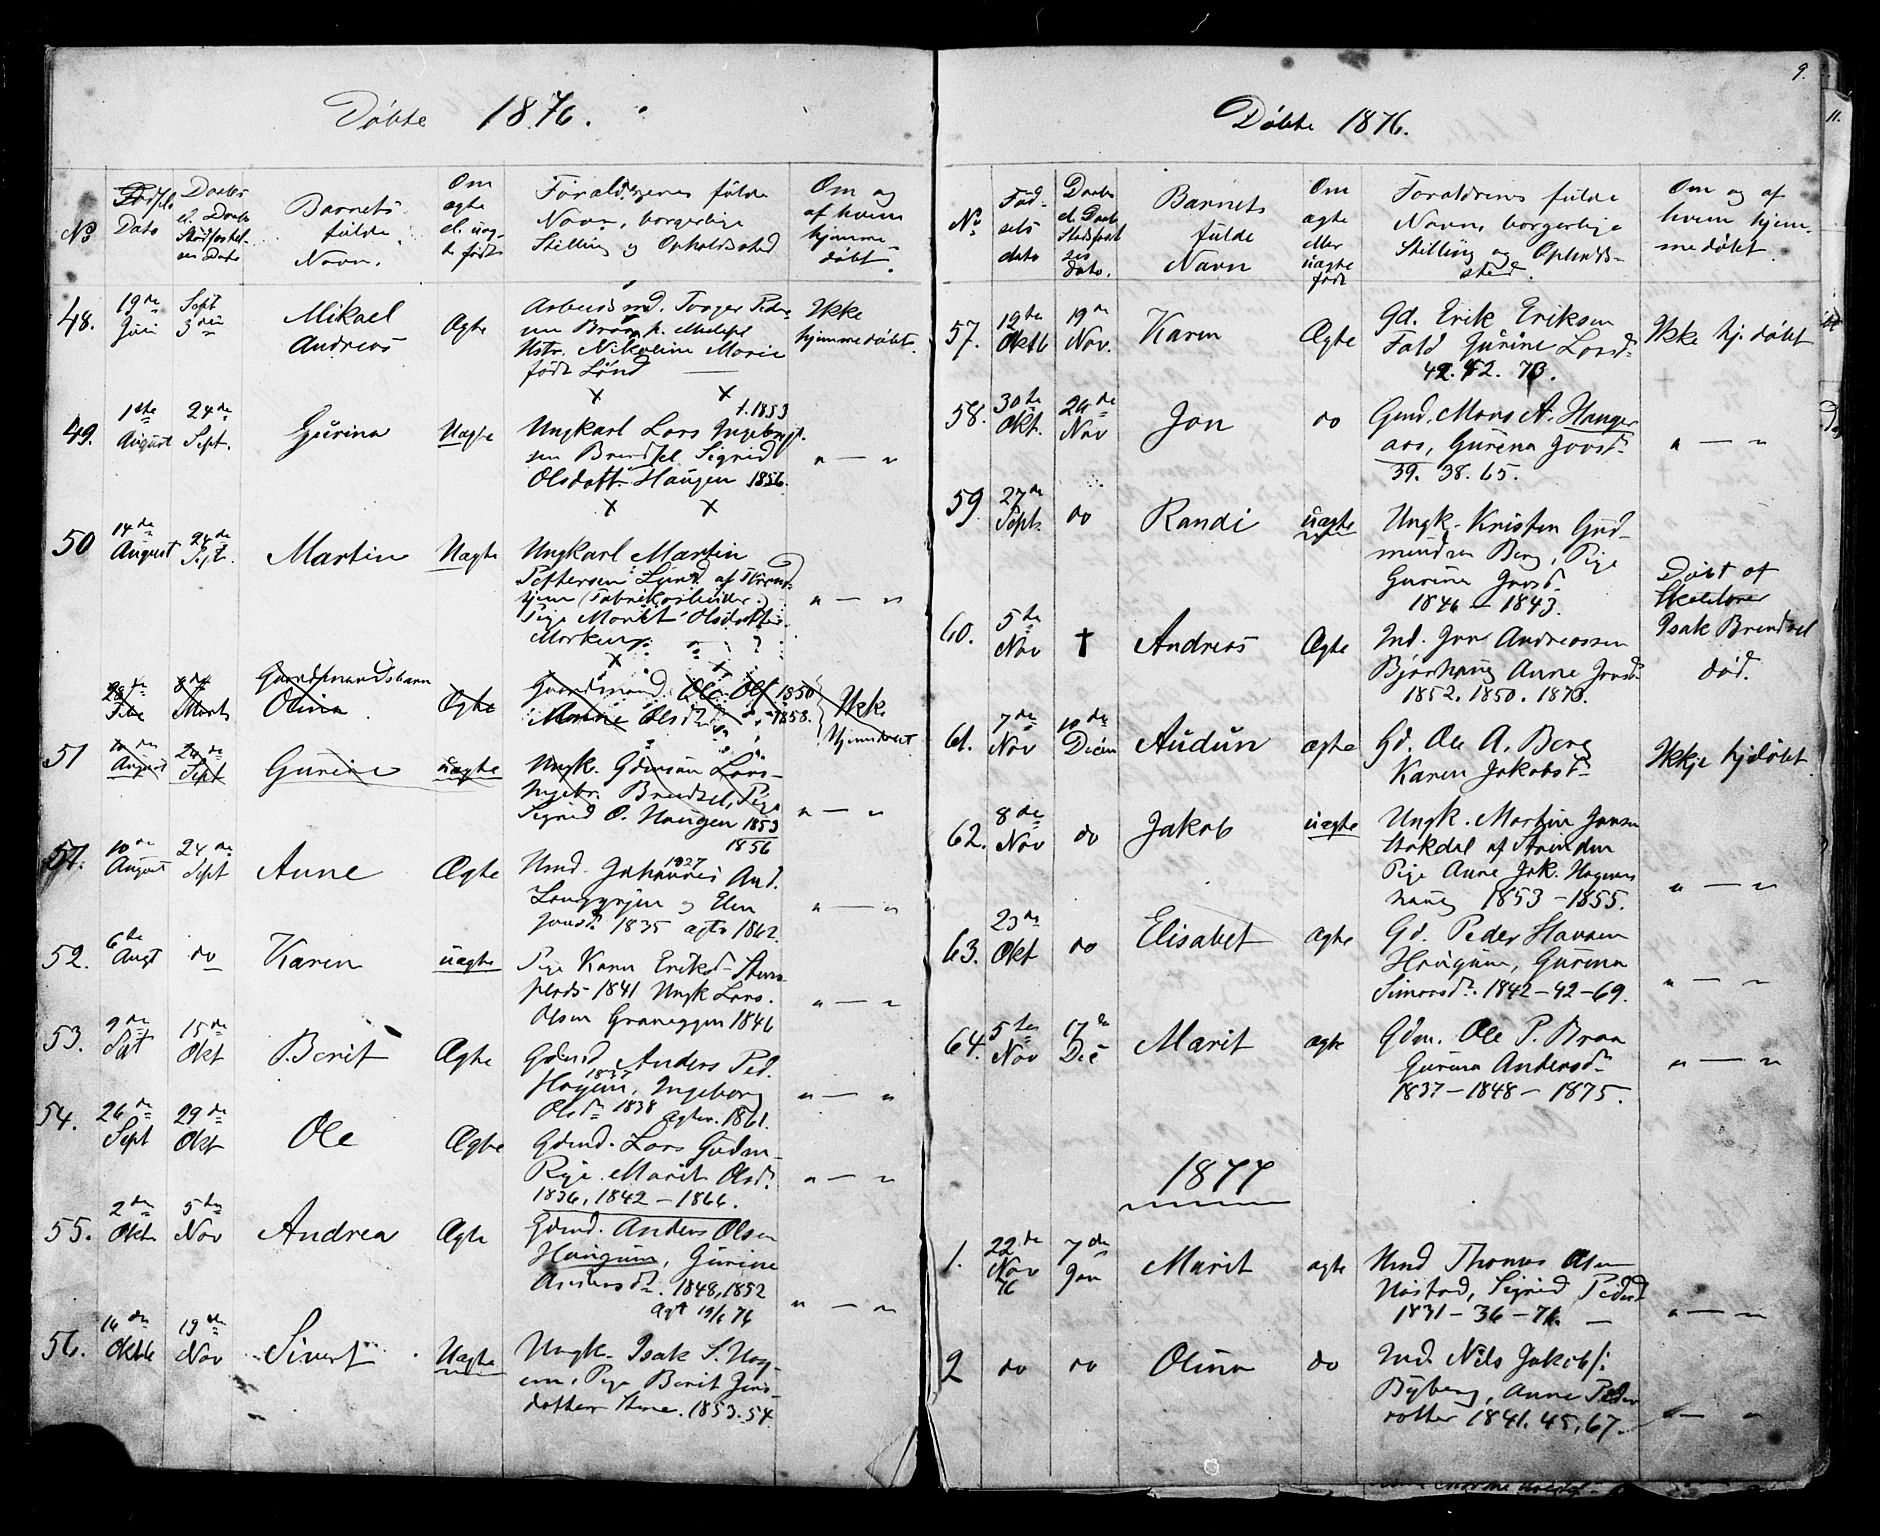 Døbte 1876.
No
Fødsels
Dato
Daabs
el. Daabs
Stadfæstel-
ses Dato
Barnets
fulde
Navn.
Om
ægte
el. uæg-
te født
Forældrenes fulde
Navn, borgerlige
Stilling og Opholdssted
Om og
af hvem
hjemme-
døbt.
48.
19de
Juni
Sept
3die
Mikael
Andreas
Ægte
Arbeidsmd. Torger Peder-
sen
Hstr. Nikoline Marie
født Lund
Ikke
hjemmedøbt.
49.
1ste
August
24de
Sept.
Gurina
Uægte
f. 1853
Ungkarl Lars Ingebrigt-
sen Brendsel Sigrid
Olsdatt. Haugen 1856.
" — "
50
14de
August
24de
Sept.
Martin
Uægte
Ungkarl Martin
Pettersen Lund af Trond-
hjem (Fabrikarbeider.)
Pige Marit Olsdatter
Morken
" — "
Gaardmandsbarn
Marts
Olina
Ægte
Gaardmand Ole Ols 1850
Olsd 1858.
Ikke
hjemdøbt
51
10de
August
24de
Sept
Gurine
uægte
Ungk. Lars
Ingebr. Brendsel, Pige
Sigrid O. Haugen 1853
1856
" — "
51.
10de
August
24de
Sept
Anne
Ægte
Hmd. Johannes And. 1827
og Elen
Jonsdr 1835 ægte 1862.
" — "
52.
6te
Augt
do
Karen
uægte
Pige Karen Eriksd.
1841 Ungk Lars
Olsen 1846
" — "
53.
9de
Sept
15de
Okt
Berit
Ægte
Gdmd Anders Ped.
1837
Ingeborg
Olsdr 1838 ægtev. 1861.
" — "
54.
26de
Sept
29de
Okt
Ole
Ægte
Gdmd. Lars Gudm.
Rye. Marit Olsdr
1836, 1842 – 1866.
" — "
55.
2den
Okt
5te
Nov
Andrea
Ægte
Gdmd. Anders Olsen
Haugum, Gurine
Andersdr. 1848, 1852
ægt 19/6 76
" — "
56.
16de
Oktb
19de
Nov
Sivert
Uægte
Ungk. Isak S.
Pige Berit Jons-
datter 1853. 54
9.
11.
Døbte 1876.
No
Fød-
sels
dato
Daabs
el. Daabs
Stadfæst
ses
dato.
Barnets
fulde
Navn
Om
ægte
eller
uægte
født
Forældrenes fulde
Navn, borgerlige
Stilling og Opholds-
sted.
Om og af
hvem hjem-
medøbt.
57.
12te
Oktb
19de
Nov.
Karen
Ægte
Gd. Erik Eriksen
Fald Gurine Larsdr
42. 52. 73.
Ikke hj. døbt
58.
30te
Okt.
26de
Nov
Jon
do
Gmd. Mons A. Hanger
aas, Gurena Jonsdr
39. 38. 65.
" — "
59
27de
Sept.
do
Randi
uægte
Ungk. Kristen Gud-
mundsen Berg, Pige
Gurine
1846 – 1843.
60.
5te
Nov
†
Andreas
Ægte
Ind. Jon Andreassen
Bjørhaug Anne Jonsd
1852. 1850. 1873.
Døbt af
Skolelærer
Isak Brendsel
død.
61.
7de
Nov
10de
Decem
Audun
ægte
Gd. Ole A. Berg
Karen Jakobsdr
Ikkje hjdøbt
62.
8de
Nov
do
Jakob
uægte
Ungk. Martin Jonsen
Stokdal af Strinden
Pige Anne Jak.
haug 1853 – 1855.
" — "
63.
23de
Okt
do
Elisabet
ægte
Gd. Peder Hansen
Haugum, Gurena
Simonsdr. 1842 – 42 – 69.
" — "
64.
5te
Nov
17de
Dec
Marit
ægte
Gdm. Ole P. Braa
Gurena Andersdr
1837 – 1848 – 1875.
" — "
1877
1.
22de
Nov
76
7de
Jan
Marit
ægte
Hmd Thomas Olsen
Sigrid Pedersd
1831 – 36 – 71. –
" — "
2
do
do
Olina
do
Ind. Nils Jakobs.
Byberg, Anne Peders
datter 1841. 45, 67.
" — "